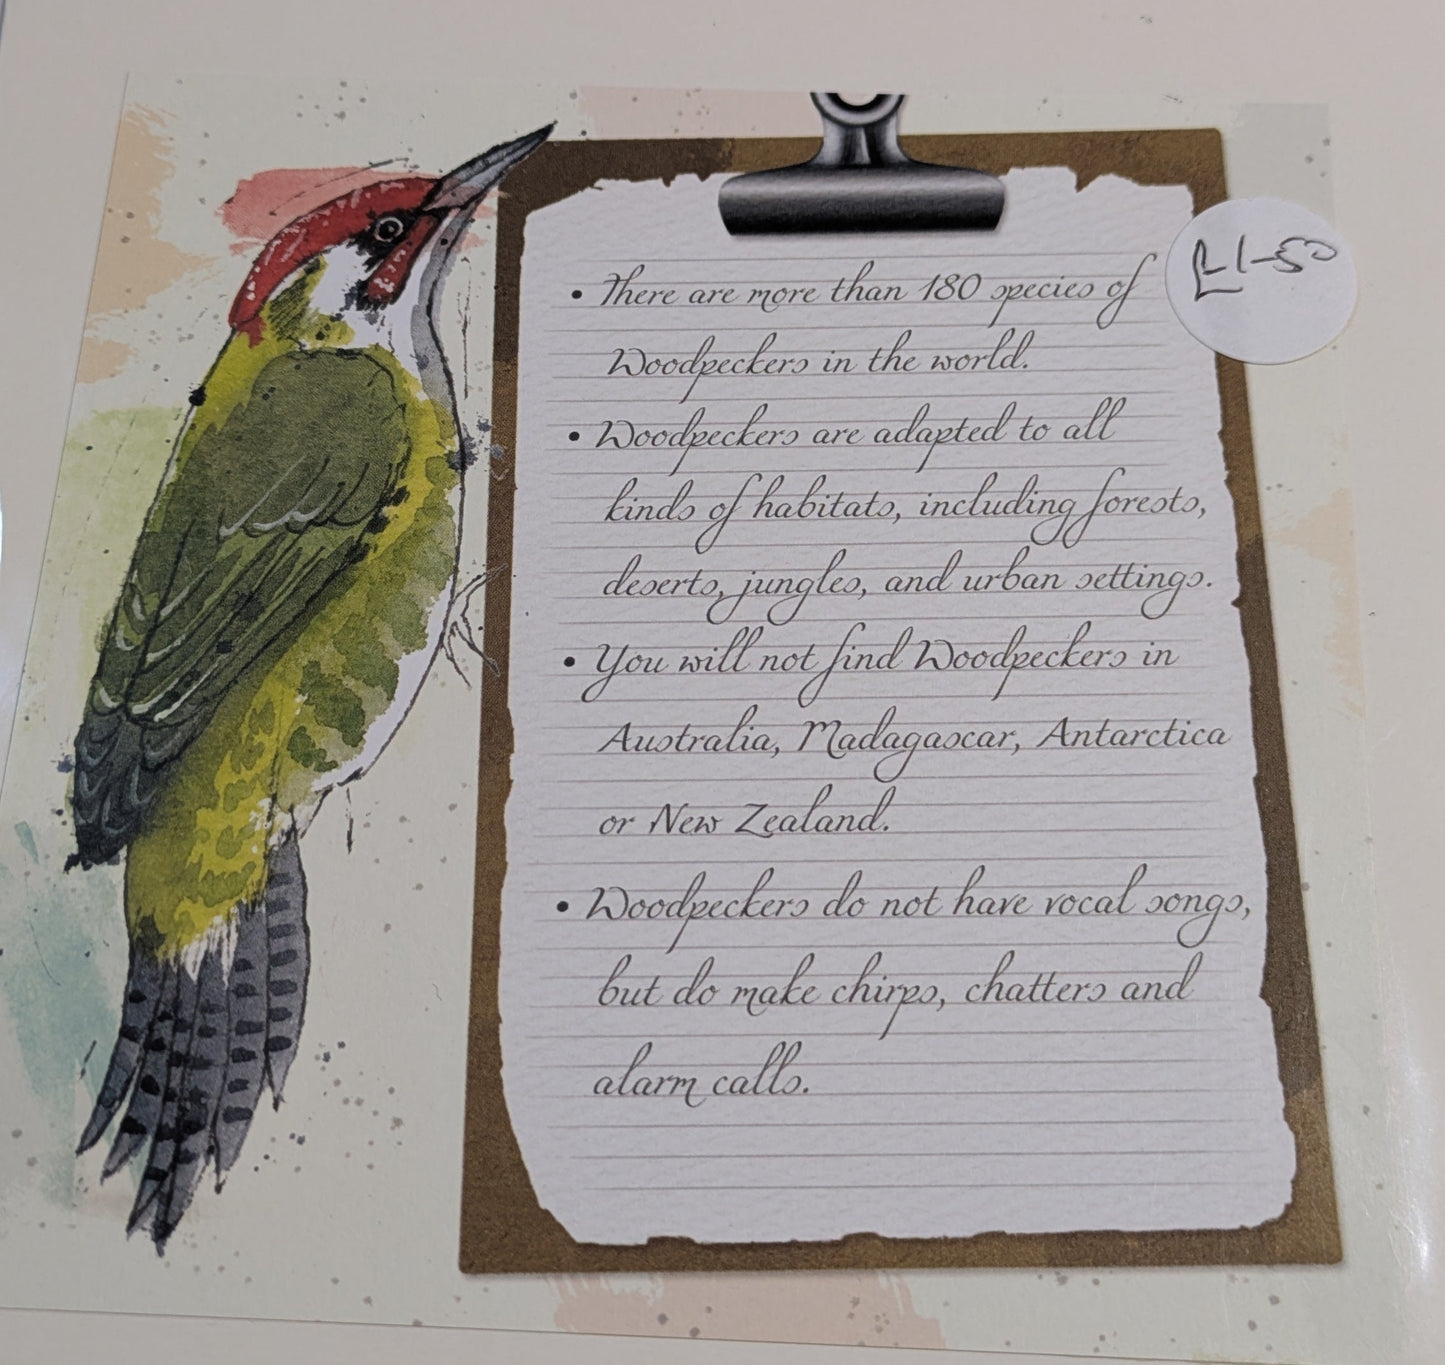 • There are more than 180 species of
Woodpeckers in the world.
• Woodpeckers are adapted to all
kinds of habitats, including forests,
deserts, jungles, and urban settings.
• You will not find Woodpeckers in
Australia, Madagascar, Antarctica
or New Zealand.
• Woodpeckers do not have vocal songs,
but do make chirps, chatters and
alarm calls.
£1-50